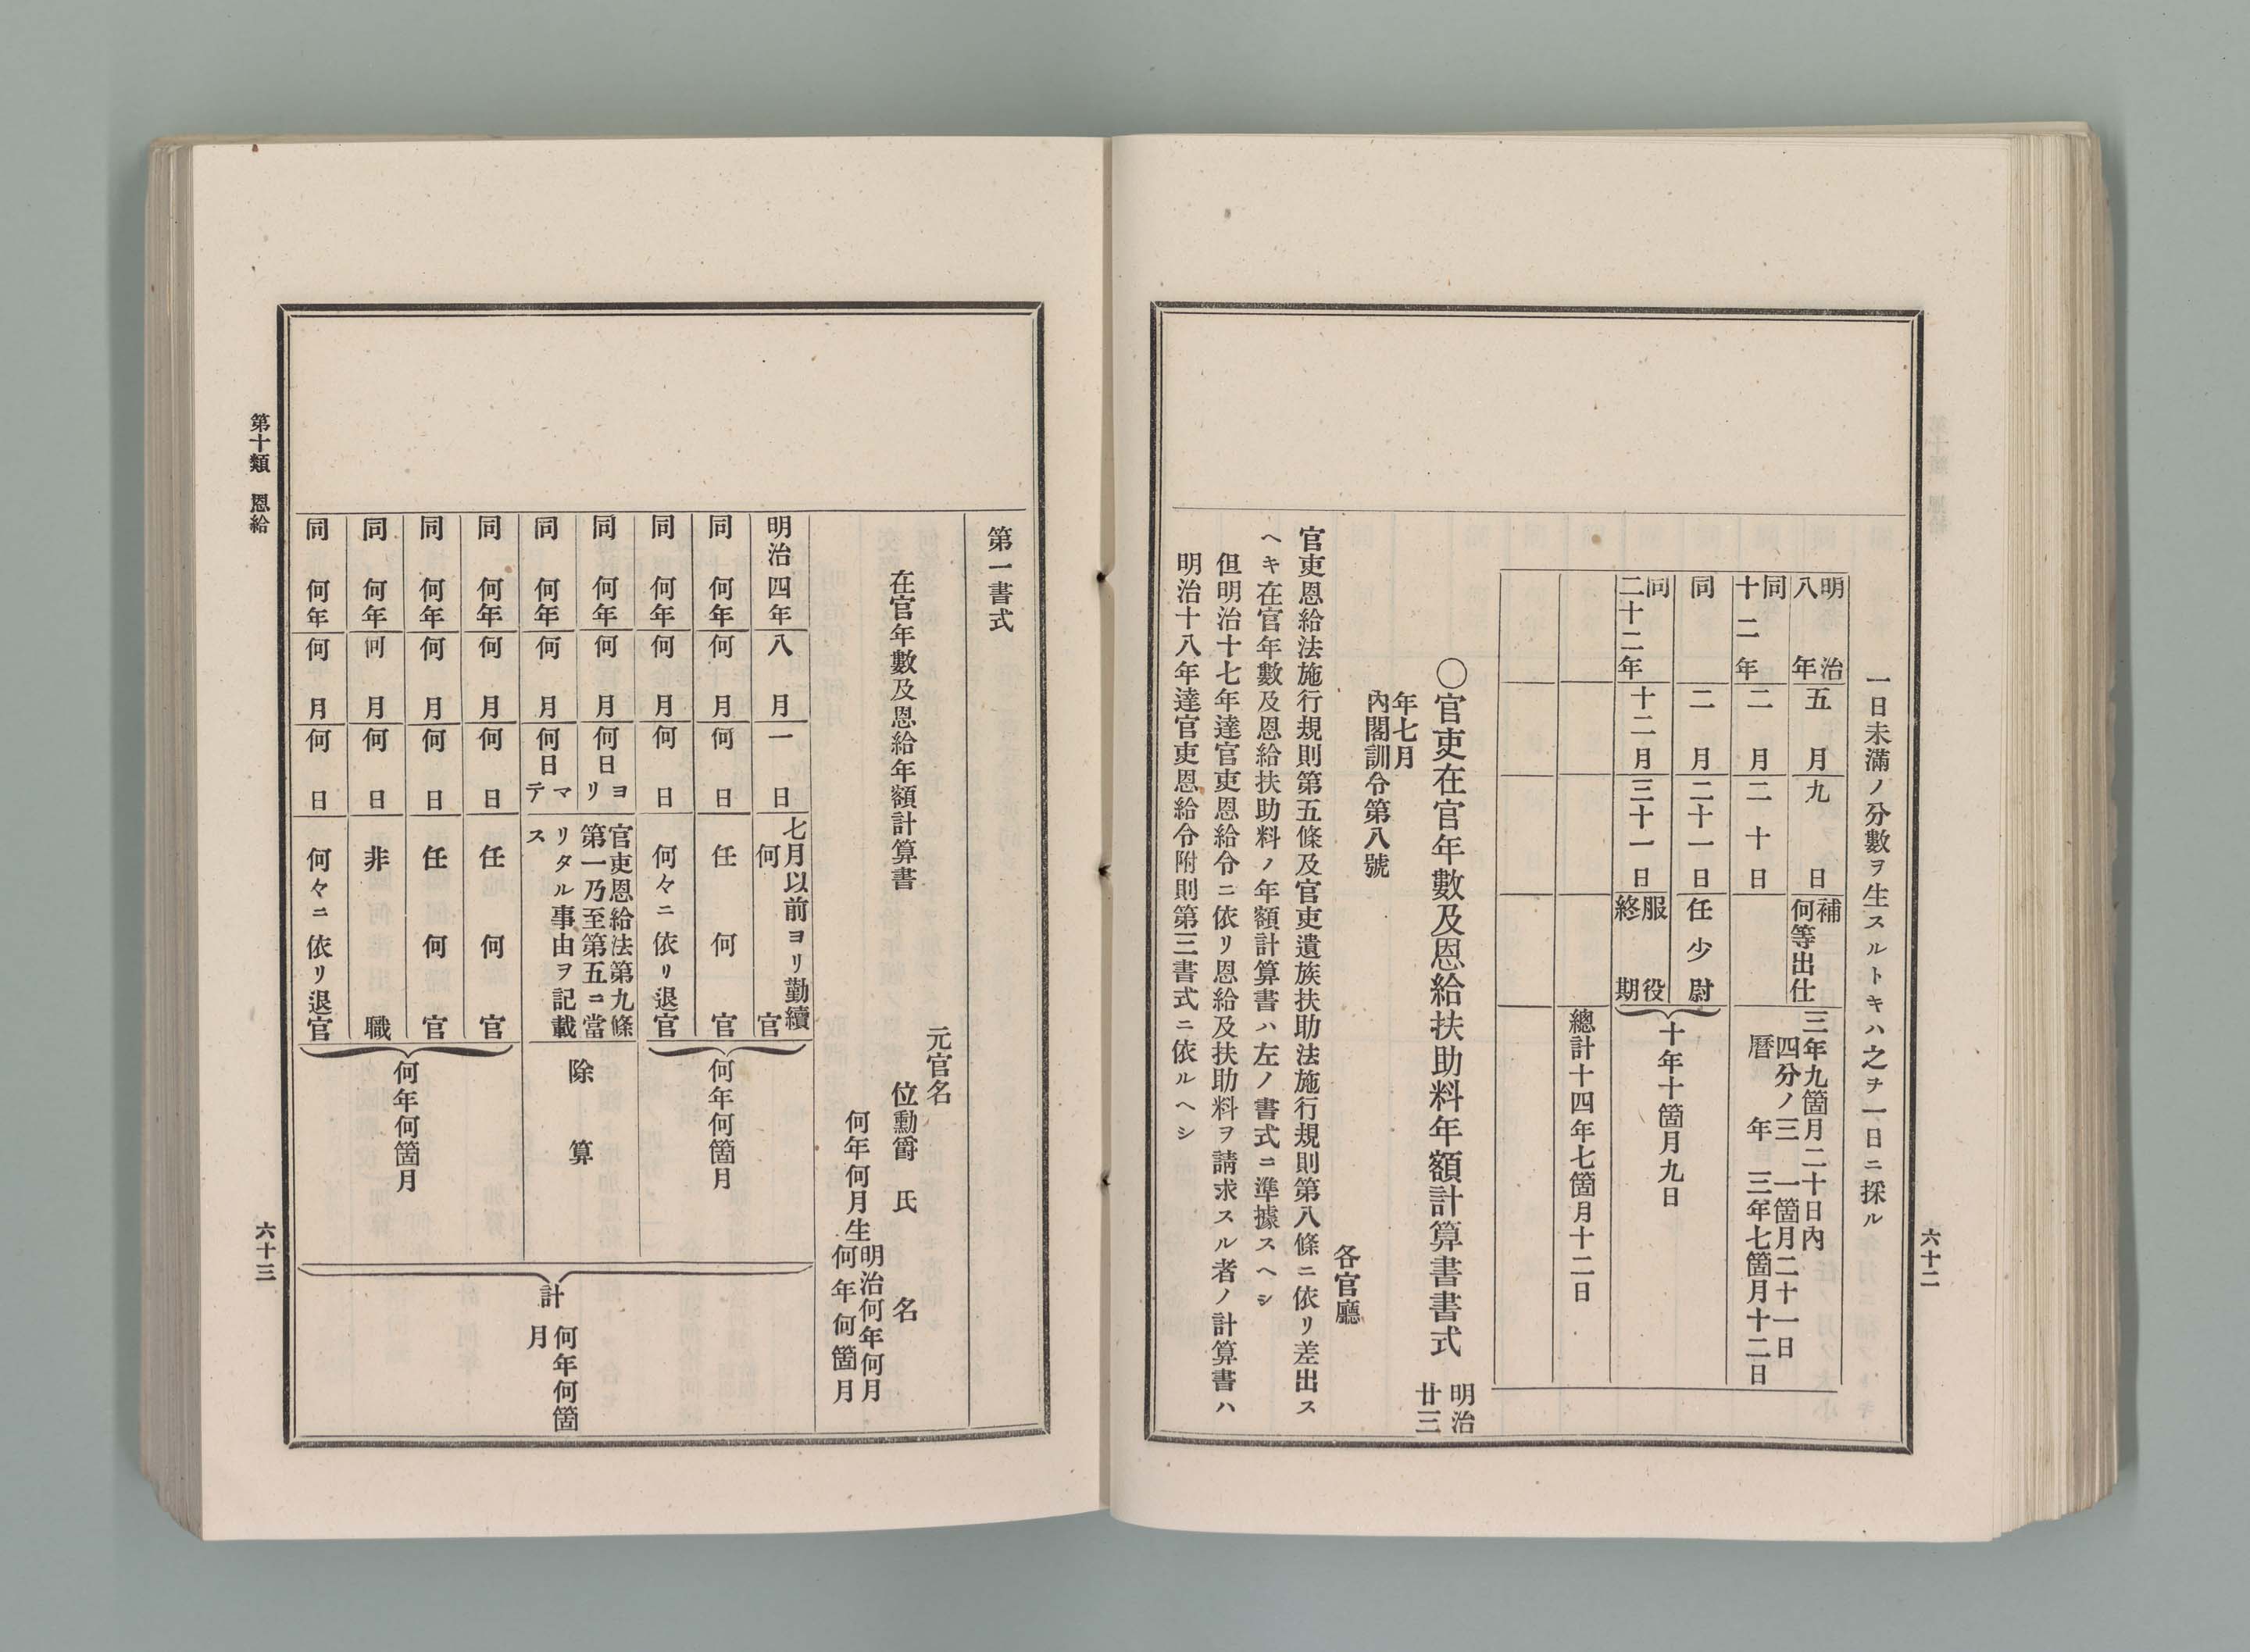 六十二
一日未滿ノ分數ヲ生スルトキハ之ヲ一日ニ採ル
明治八年 五月 九日 補何等出仕
同十二年 二月 二十日
三年九箇月二十日內
四分ノ三 一箇月二十一日
曆年 三年七箇月十二日
同 二月 二十一日 任少尉
同二十二年 十二月 三十一日 服役終期
十年十箇月九日
總計十四年七箇月十二日
〇官吏在官年數及恩給扶助料年額計算書書式 明治廿三
年七月
內閣訓令第八號
各官廳
官吏恩給法施行規則第五條及官吏遺族扶助法施行規則第八條ニ依リ差出ス
ヘキ在官年數及恩給扶助料ノ年額計算書ハ左ノ書式ニ準據スヘシ
但明治十七年達官吏恩給令ニ依リ恩給及扶助料ヲ請求スル者ノ計算書ハ
明治十八年達官吏恩給令附則第三書式ニ依ルヘシ
第一書式
元官名
在官年數及恩給年額計算書
位勳爵 氏 名
何年何月生
明治何年何月
何年何箇月
明治四年 八月 一日 七月以前ヨリ勤續
何官
同 何年 何月 何日 任何官
同 何年 何月 何日 何々ニ依リ退官
何年何箇月
同 何年 何月 何日ヨリ
同 何年 何月 何日マテ
官吏恩給法第九條
第一乃至第五ニ當
リタル事由ヲ記載
ス
除算
同 何年 何月 何日 任何官
同 何年 何月 何日 任何官
同 何年 何月 何日 非職
同 何年 何月 何日 何々ニ依リ退官
何年何箇月
計 何年何箇
月
第十類 恩給
六十三